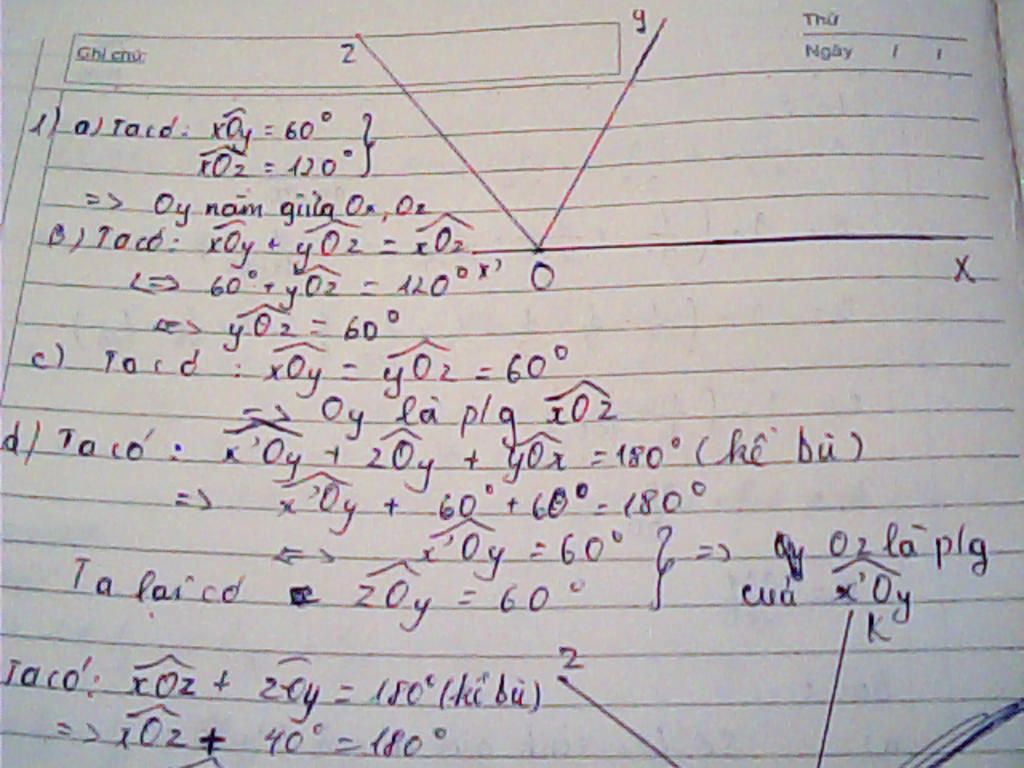 Thứ
Ghi chú:
Ngày / /
z
y
1) a) Ta có: xOy = 60°
xOz = 120° }
=> Oy nằm giữa Ox, Oz
b) Ta có: xOy + yOz = xOz
<=> 60° + yOz = 120°
x' O x
<=> yOz = 60°
c) Ta có: xOy = yOz = 60°
=> Oy là p/g xOz
d) Ta có: x'Oy + zOy + yOx = 180° (kề bù)
=> x'Oy + 60° + 60° = 180°
<=> x'Oy = 60° } => Oz là p/g
Ta lại có zOy = 60° của x'Oy
K
z
Ta có: xOz + zOy = 180° (kề bù)
=> xOz + 40° = 180°